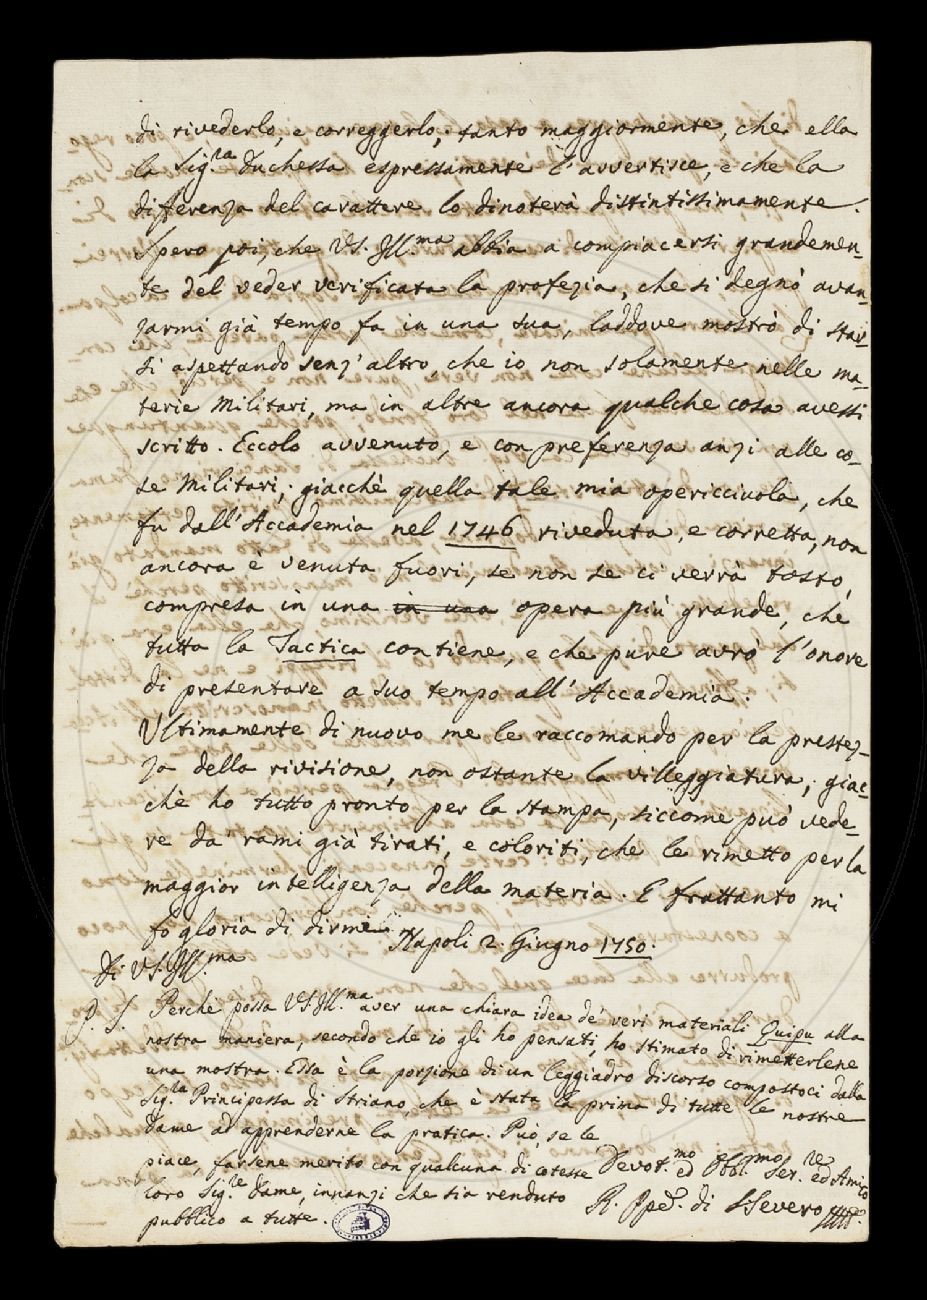 di rivederlo, e correggerlo; tanto maggiormente, che ella
la Sig.ra Duchessa espressamente l'avvertisce, e che la
differenza del carattere lo dinoterà distintissimamente.
Spero poi, che VS. Ill.ma abbia a compiacersi grandemen-
te del veder verificata la profezia, che si degnò avan-
zarmi già tempo fa in una sua, laddove mostrò di star-
si aspettando senz'altro, che io non solamente nelle ma-
terie Militari, ma in altre ancora qualche cosa avessi
scritto. Eccolo avvenuto, e con preferenza anzi alle co-
se Militari; giacchè quella tale mia opericciuola, che
fu dall'Accademia nel 1746 riveduta, e corretta, non
ancora è venuta fuori, se non se ci verrà tosto
compresa in una in una opera più grande, che
tutta la Tactica contiene, e che pure avrò l'onore
di presentare a suo tempo all'Accademia.
Ultimamente di nuovo me le raccomando per la prestez-
za della rivisione, non ostante la villeggiatura; giac-
chè ho tutto pronto per la stampa, siccome può vede-
re da rami già tirati, e coloriti, che le rimetto per la
maggior intelligenza della materia. E frattanto mi
fo gloria di dirmi
Napoli 2. Giugno 1750.
Di VS. Ill.ma
P. S. Perchè possa VS. Ill.ma aver una chiara idea de' veri materiali Quipu alla
nostra maniera, secondo che io gli ho pensati, ho stimato di rimetterlene
una mostra. Essa è la porzione di un leggiadro discorso compostoci dalla
Sig.la Principessa di Striano che è stata la prima di tutte le nostre
Dame ad apprenderne la pratica. Può, se le
piace, farsene merito con qualcuna di cotesse
loro Sig.re Dame, innanzi che sia renduto
pubblico a tutte.
Devot.mo ed Obbl.mo Ser.re ed Amico
R. Ppe. di SSevero